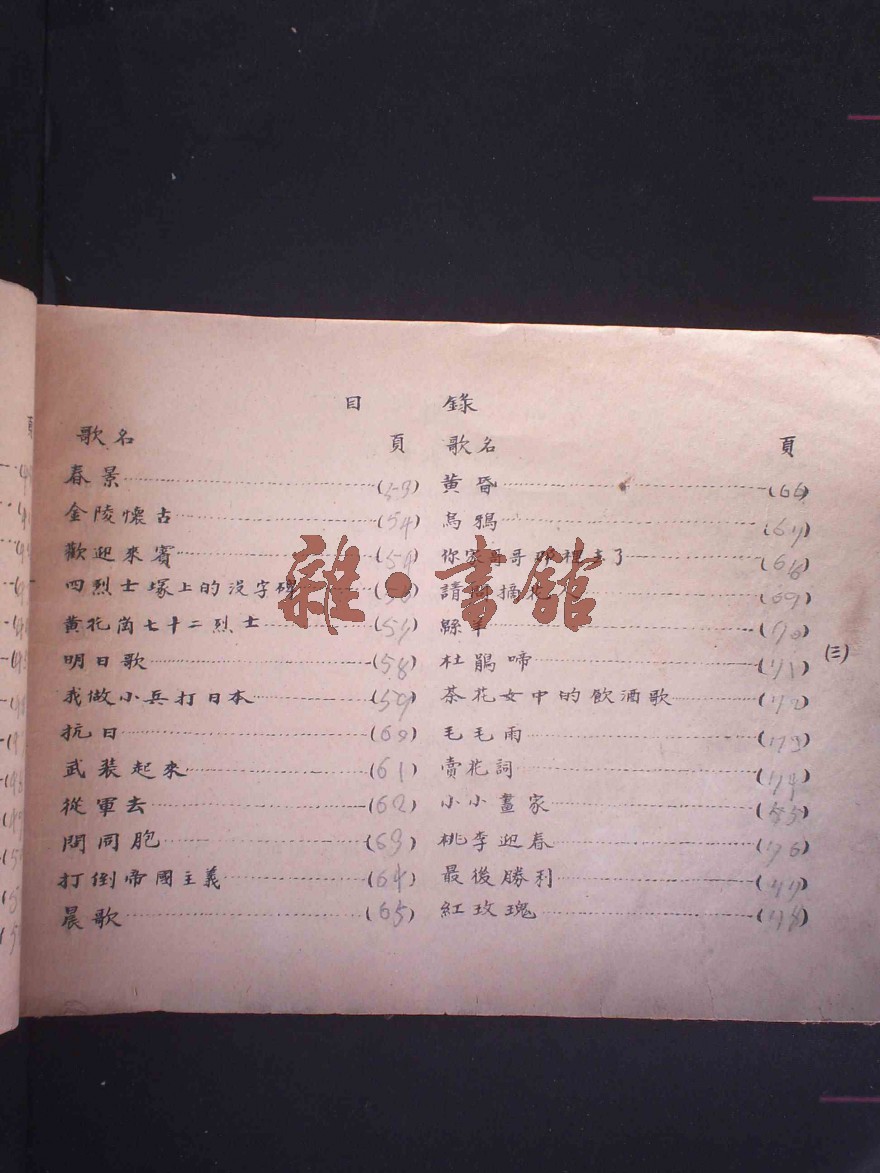 目 錄
歌名 頁
春景 (53)
金陵懷古 (54)
歡迎來賓
四烈士塚上的沒字碑
黃花崗七十二烈士 (57)
明日歌 (58)
我做小兵打日本 (59)
抗日 (60)
武裝起來 (61)
從軍去 (62)
問同胞 (63)
打倒帝國主義 (64)
晨歌 (65)
歌名 頁
黃昏 (66)
烏鴉 (67)
你家哥哥那裡去了 (68)
請 摘花 (69)
綿羊 (70)
杜鵑啼 (71)
茶花女中的飲酒歌 (72)
毛毛雨 (73)
賣花詞 (74)
小小畫家
桃李迎春 (76)
最後勝利 (77)
紅玫瑰 (78)
(三)
雜·書館